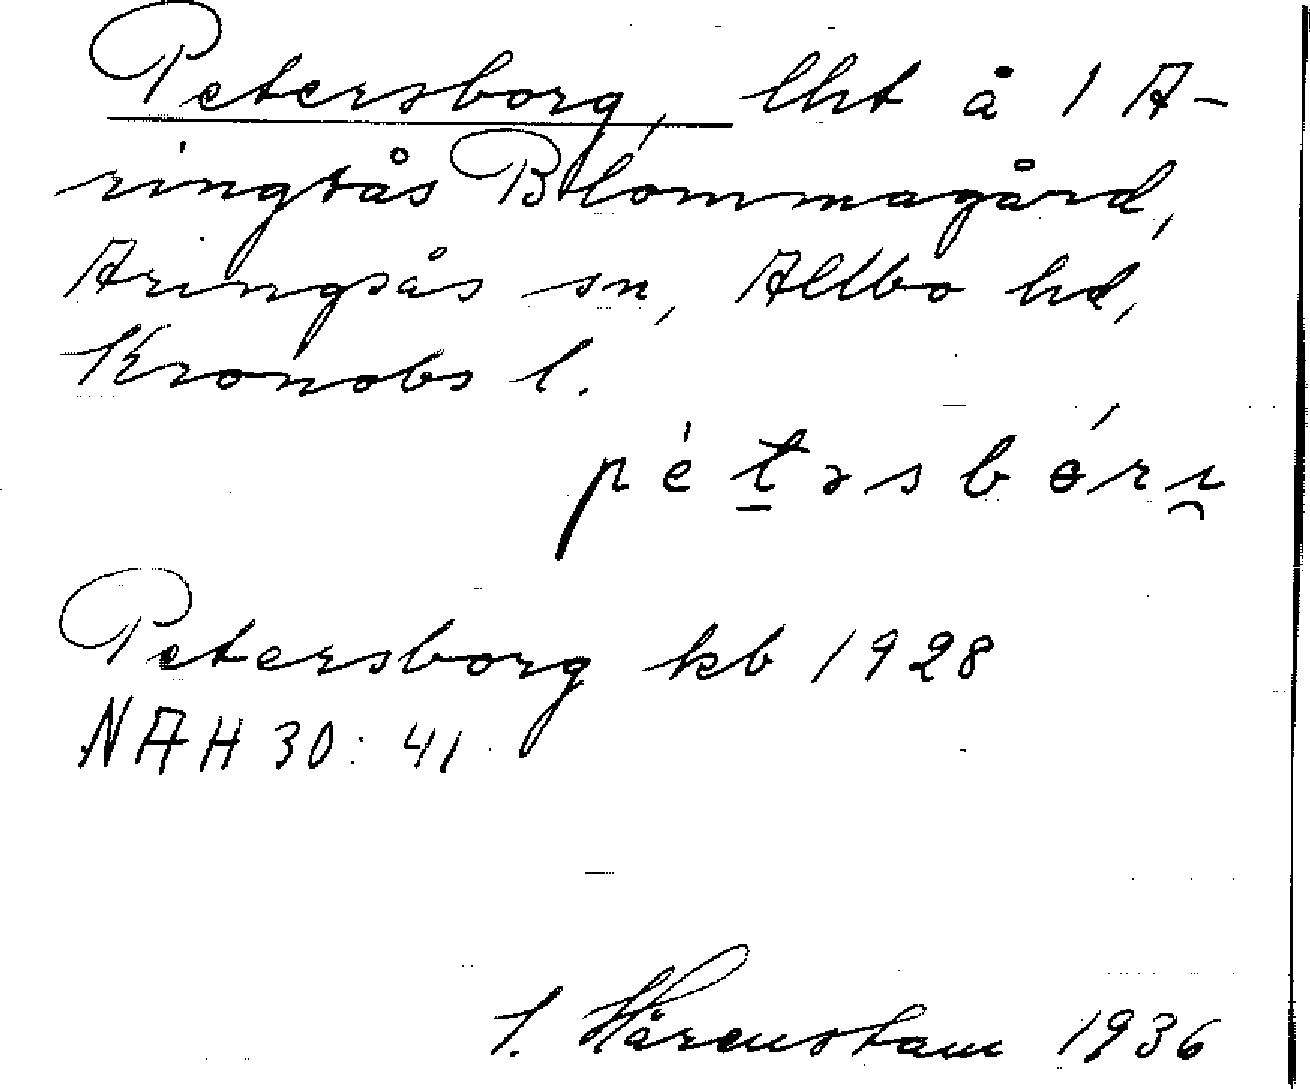 Petersborg, lht å 1 A-
ringsås Blommagård,
Aringsås sn, Allbo hd,
Kronobs l.
pètəsbórı̯
Petersborg kb 1928
NAH 30: 41
S. Hårenstam 1936